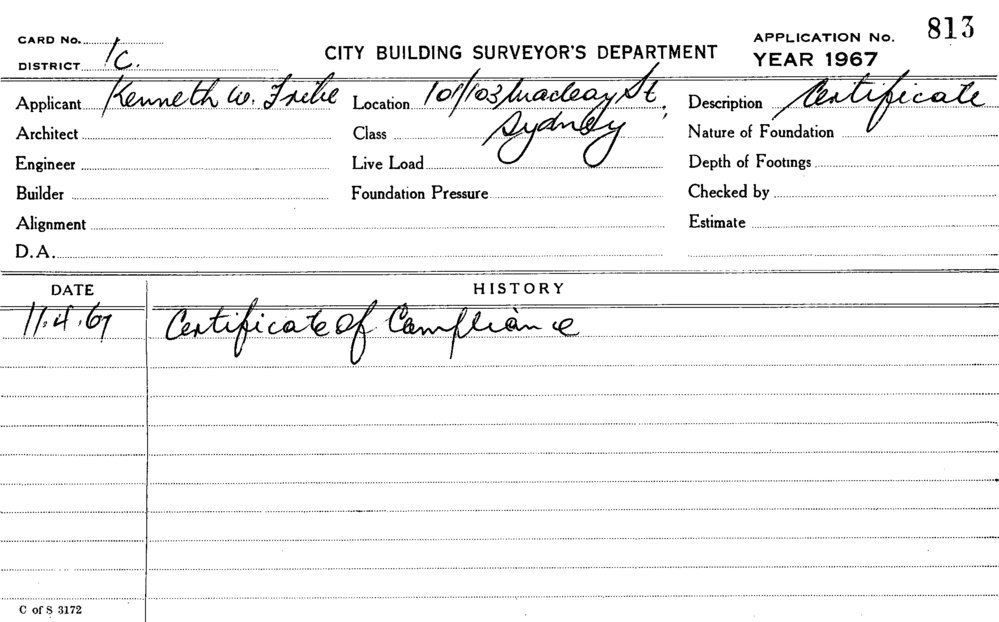 CARD No.
DISTRICT 1C.
CITY BUILDING SURVEYOR'S DEPARTMENT
APPLICATION No. 813
YEAR 1967
Applicant Kenneth W.
Location 101/103 Macleay St, Sydney
Description Certificate
Architect
Class
Nature of Foundation
Engineer
Live Load
Depth of Footings
Builder
Foundation Pressure
Checked by
Alignment
Estimate
D.A.
DATE HISTORY
11.4.67 Certificate of Compliance
C of S 3172